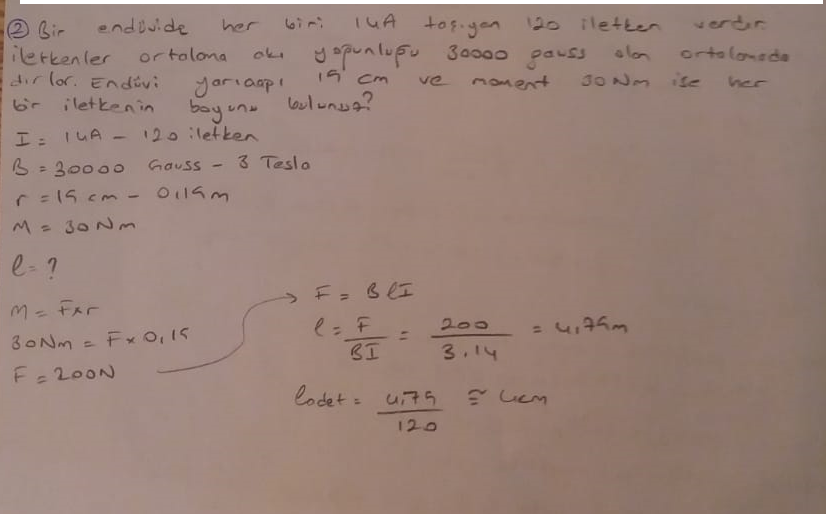 ② Bir endüvide her biri 14A taşıyan 120 iletken vardır.
iletkenler ortalama akı yoğunluğu 30000 gauss olan ortalamada
dırlar. Endüvi yarıçapı 15 cm ve moment 30 Nm ise her
bir iletkenin boyunu bulunuz?
I = 14A - 120 iletken
B = 30000 Gauss - 3 Tesla
r = 15 cm - 0,15m
M = 30 Nm
l = ?
M = F x r
30Nm = F x 0,15
F = 200N
F = B l I
l = F / BI = 200 / 3.14 = 4,75m
l adet = 4,75 / 120 ≅ 4cm